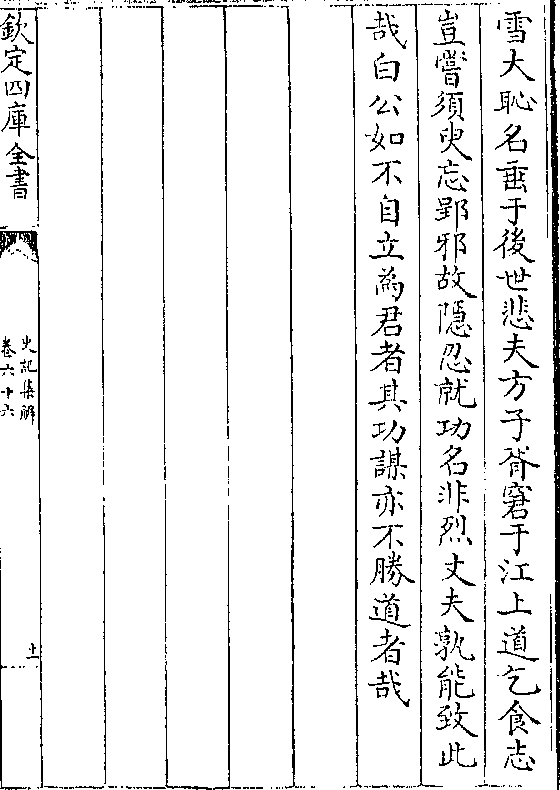 雪大恥名垂于後世悲夫方子胥窘于江上道乞食志
豈嘗須臾忘郢邪故隠忍就功名非烈丈夫孰能致此
哉白公如不自立為君者其功謀亦不勝道者哉
欽定四庫全書
史記集解
卷六十六
十一